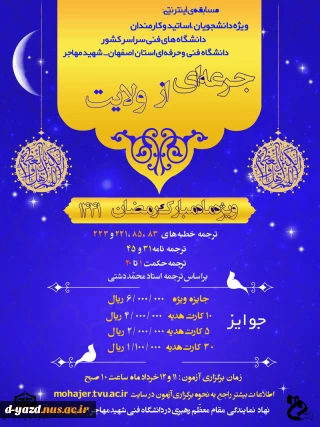 مسابقه‌ی اینترنتی:
ویژه دانشجویان، اساتید و کارمندان
دانشگاه های فنی سراسر کشور
دانشگاه فنی و حرفه‌ای استان اصفهان - شهید مهاجر
جرعه‌ای از ولایت
ویژه ماه مبارک رمضان ۱۴۴۱
ترجمه خطبه‌های ۸۳، ۸۵، ۲۲۱ و ۲۲۳
ترجمه نامه ۳۱ و ۴۵
ترجمه حکمت ۱ تا ۲۰
بر اساس ترجمه استاد محمد دشتی
جوایز
جایزه ویژه ۶/۰۰۰/۰۰۰ ریال
۱۰ کارت هدیه ۴/۰۰۰/۰۰۰ ریال
۵ کارت هدیه ۲/۰۰۰/۰۰۰ ریال
۳۰ کارت هدیه ۱/۱۰۰/۰۰۰ ریال
زمان برگزاری آزمون: ۱۱ و ۱۲ خرداد ماه ساعت ۱۰ صبح
اطلاعات بیشتر راجع به نحوه برگزاری آزمون در سایت mohajer.tvu.ac.ir
نهاد نمایندگی مقام معظّم رهبری در دانشگاه فنی شهید مهاجر
d-yazd.nus.ac.ir